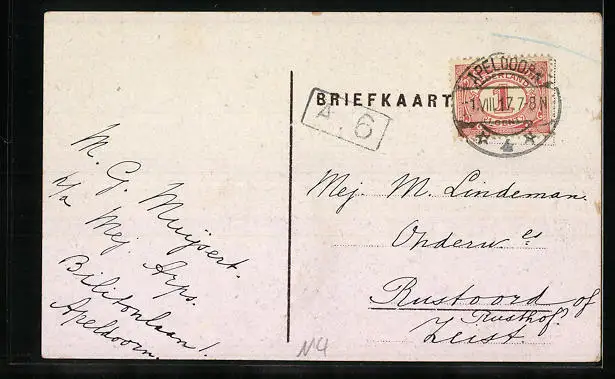 BRIEFKAART
NEDERLAND
1
CENT
APELDOORN
-1.VIII.17.7-8N
4
A 6
M. G. Muijsert.
b/a Mej. Arps.
Bilitonlaan 1.
Apeldoorn.
Mej. M. Lindeman.
Onderw.es
Rustoord of
Rusthof?
Zeist.
N4